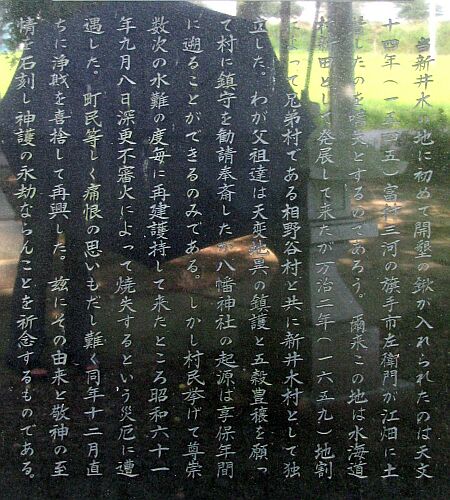 当新井木の地に初めて開墾の鍬が入れられたのは天文
十四年(一五四五)富村三河の旗手市左衛門が江畑に土
着したのを嚆矢とするのであろう。爾来この地は水海道
村新田として発展して来たが万治二年(一六五九)地割
によって兄弟村である相野谷村と共に新井木村として独
立した。わが父祖達は天変地異の鎮護と五穀豊穣を願っ
て村に鎮守を勧請奉斎したが八幡神社の起源は享保年間
に遡ることができるのみである。しかし村民挙げて尊崇
数次の水難の度毎に再建護持して来たところ昭和六十一
年九月八日深更不審火によって焼失するという災厄に遭
遇した。町民等しく痛恨の思いもだし難く同年十二月直
ちに浄財を喜捨して再興した。茲にその由来と敬神の至
情を石刻し神護の永劫ならんことを祈念するものである。